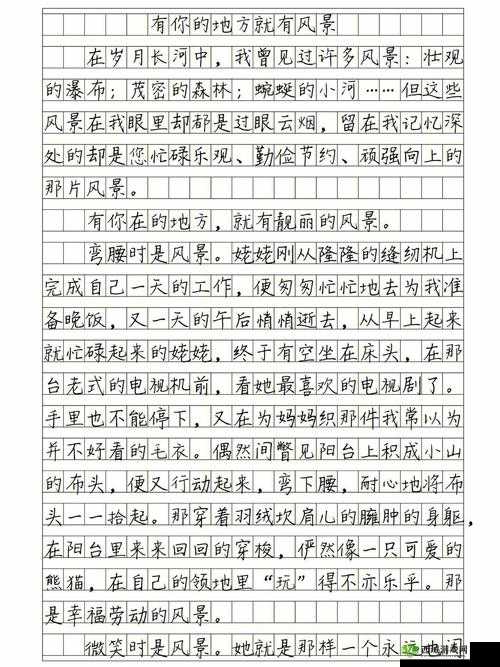 有你的地方就有风景
在岁月长河中，我曾见过许多风景：壮观
的瀑布；茂密的森林；蜿蜒的小河……但这些
风景在我眼里却都是过眼云烟，留在我记忆深
处的却是您忙碌乐观、勤俭节约、顽强向上的
那片风景。
有你在的地方，就有靓丽的风景。
弯腰时是风景。姥姥刚从隆隆的缝纫机上
完成自己一天的工作，便匆匆忙忙地去为我准
备晚饭，又一天的午后悄悄逝去，从早上起来
就忙碌起来的姥姥，终于有空坐在床头，在那
台老式的电视机前，看她最喜欢的电视剧了。
手里也不能停下，又在为妈妈织那件我常以为
并不好看的毛衣。偶然间瞥见阳台上积成小山
的布头，便又行动起来，弯下腰，耐心地将布
头一一拾起。那穿着羽绒坎肩儿的臃肿的身躯，
在阳台里来来回回的穿梭，俨然像一只可爱的
熊猫，在自己的领地里“玩”得不亦乐乎。那
是幸福劳动的风景。
微笑时是风景。她就是那样一个永远